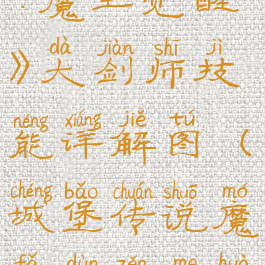 :魔王觉醒
dà jiàn shī jì
》大剑师技
néng xiáng jiě tú
能详解图（
chéng bǎo chuán shuō mó
城堡传说魔
fǎ dùn zěn me huà